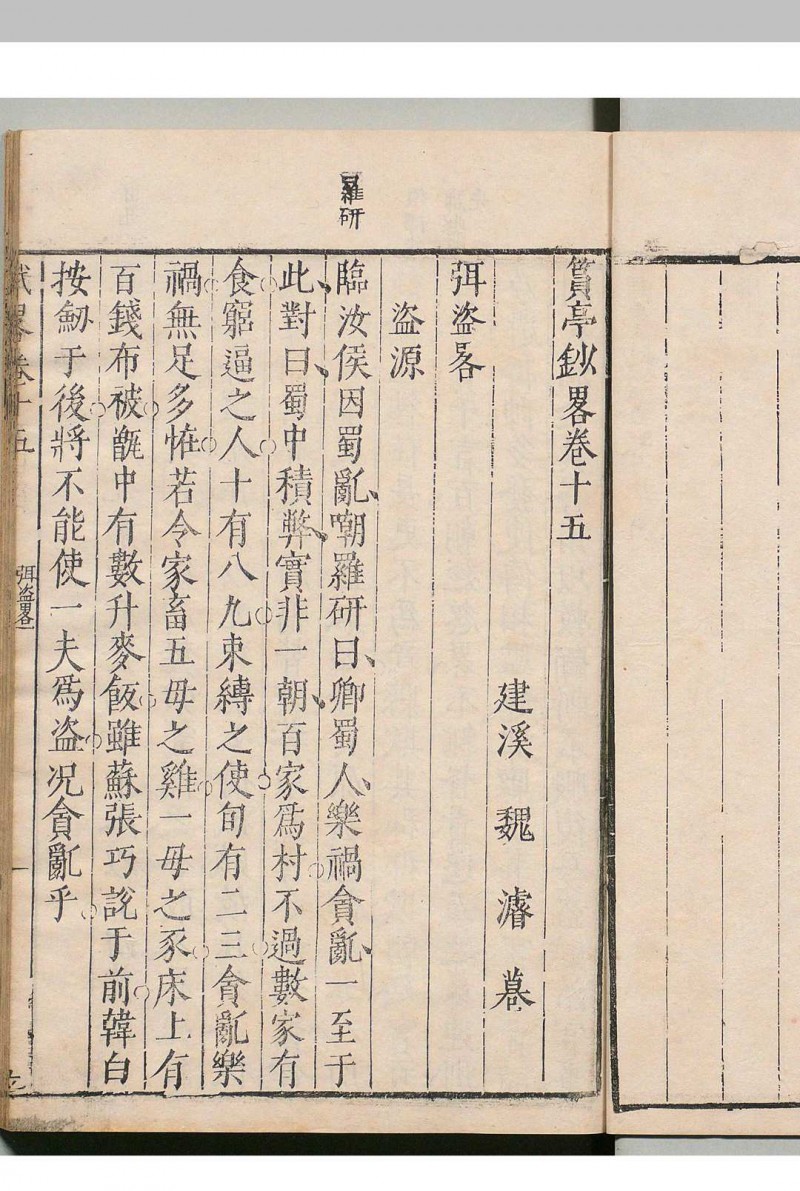 羅研
篔亭鈔畧卷十五
建溪魏濬纂
弭盜畧
盜源
臨汝侯因蜀亂嘲羅研曰卿蜀人樂禍貪亂一至于
此對曰蜀中積弊實非一朝百家爲村不過數家有
食窮逼之人十有八九束縛之使旬有二三貪亂樂
禍無足多恠若令家畜五母之雞一母之豕床上有
百錢布被甑中有數升麥飯雖蘇張巧說于前韓白
按劒于後將不能使一夫爲盜况貪亂乎
畧卷十五
弭盜畧
一